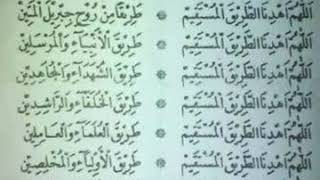 اَللّٰهُمَّ اهْدِنَا الطَّرِيْقَ الْمُسْتَقِيْمَ ۞ طَرِيْقًا مِنْ رُوْحِ جِبْرِيْلَ الْمَتِيْنَ
اَللّٰهُمَّ اهْدِنَا الطَّرِيْقَ الْمُسْتَقِيْمَ ۞ طَرِيْقَ الْاَنْبِيَآءِ وَالْمُرْسَلِيْنَ
اَللّٰهُمَّ اهْدِنَا الطَّرِيْقَ الْمُسْتَقِيْمَ ۞ طَرِيْقَ الشُّهَدَآءِ وَالْمُجَاهِدِيْنَ
اَللّٰهُمَّ اهْدِنَا الطَّرِيْقَ الْمُسْتَقِيْمَ ۞ طَرِيْقَ الْخُلَفَآءِ وَالرَّاشِدِيْنَ
اَللّٰهُمَّ اهْدِنَا الطَّرِيْقَ الْمُسْتَقِيْمَ ۞ طَرِيْقَ الْعُلَمَآءِ وَالْعَامِلِيْنَ
اَللّٰهُمَّ اهْدِنَا الطَّرِيْقَ الْمُسْتَقِيْمَ ۞ طَرِيْقَ الْاَوْلِيَآءِ وَالْمُخْلِصِيْنَ